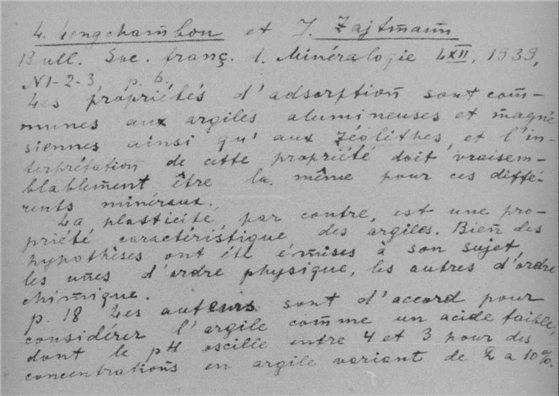 L. Longchambon et J. Zajtmann
Bull. Soc. franç. d. Minéralogie LXII, 1939,
N1-2-3, p. 6.
Les propriétés d'adsorption sont com-
munes aux argiles alumineuses et magné
siennes ainsi qu'aux zéolithes et l'in-
terprétation de cette propriété doit vraisem-
blablement être la même pour ces diffé-
rents minéraux.
La plasticité, par contre, est une pro-
priété caractéristique des argiles. Bien des
hypothèses ont été émises à son sujet,
les unes d'ordre physique, les autres d'ordre
chimique.
p. 18 Les auteurs sont d'accord pour
considérer l'argile comme un acide faible,
dont le pH oscille entre 4 et 3 pour des
concentrations en argile variant de 2 a 10%.